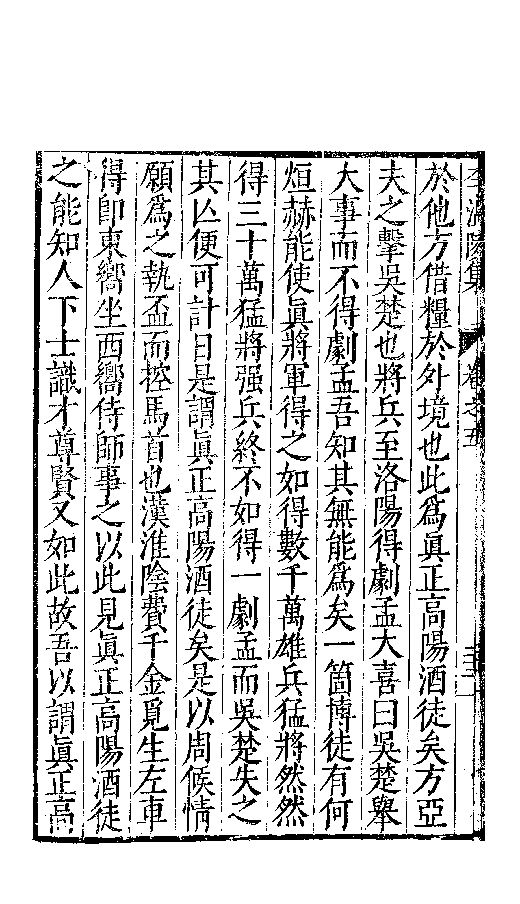 李溫陵集 卷之五
於他方借糧於外境也此為眞正高陽酒徒矣方亞
夫之擊吳楚也將兵至洛陽得劇孟大喜曰吳楚舉
大事而不得劇孟吾知其無能為矣一箇博徒有何
烜赫能使眞將軍得之如得數千萬雄兵猛將然然
得三十萬猛將强兵終不如得一劇孟而吳楚失之
其亾便可計日是謂眞正高陽酒徒矣是以周候情
願為之執盃而控馬首也漢淮陰費千金覓生左車
得卽東嚮坐西嚮侍師事之以此見眞正高陽酒徒
之能知人下士識才尊賢又如此故吾以謂眞正高